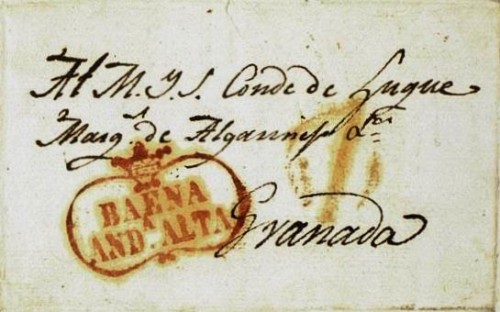 Al M. Y. S. Conde de Luque
Marq.s de Algarinejo &.a
BAENA
AND. ALTA
Granada